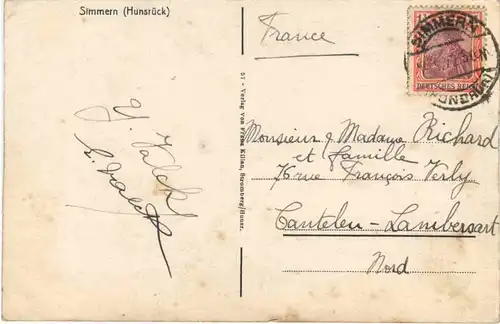 Simmern (Hunsrück)
France
SIMMERN
(HUNSRÜCK)
DEUTSCHES REICH
57 - Verlag von Franz Kilian, Stromberg/Hunsr.
Monsieur & Madame Richard
et famille
76 rue François Verly
Canteleu-Lambersart
Nord